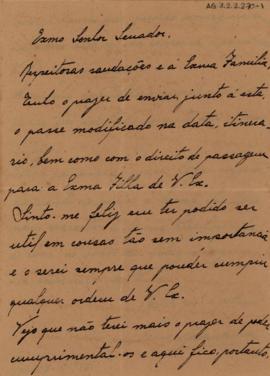 AG 3.2.2.270-1
Exmo Senhor Senador.
Respeitosas saudações e á Exma Familia,
Tenho o prazer de enviar, junto á esta,
o passe modificado na data, itine-
rario, bem como com o direito de passagem
para a Exma Filha de V. Ex.
Sinto-me feliz em ter podido ser
util em cousas tão sem importancia
e o serei sempre que pouder cumprir
qualquer ordem de V. Ex.
Vejo que não terei mais o prazer de poder
cumprimental-os e aqui fico, portanto,